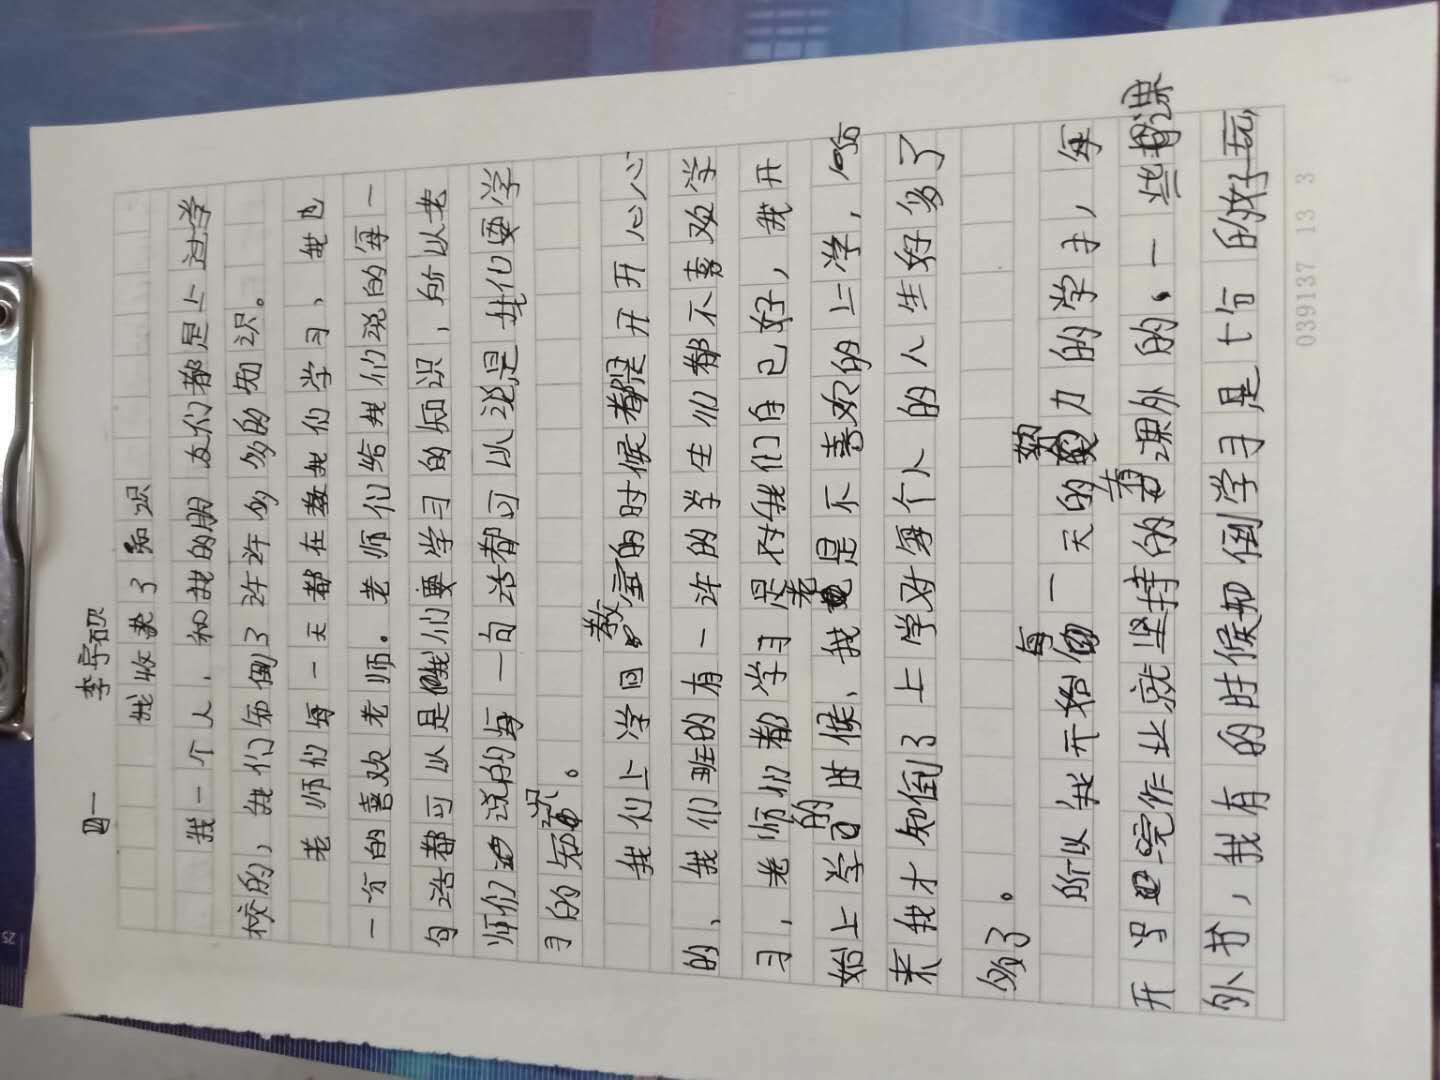 四一 李宇硕
我收来了知识
我一个人，和我的朋友们都是上过学
校的，我们知倒了许许多多的知识。
老师们每一天都在教我们学习、我也
一方的喜欢老师。老师们给我们说的每一
句话都可以是我们要学习的知识，所以老
师们说的每一句话都可以说是我们要学
习的知识。
我们上学回教室的时候都是开开心心
的、我们班的有一许的学生们都不喜欢学
习，老师们都学习是对我们自己好，我开
始上学习的时候、我也是不喜欢的上学，
来我才知倒了上学对每个人的人生好多了
多了。
所以我开始每一天的努力的学习，每
天写完作业就坚持的去课外的，一些课
外书，我有的时候知倒学习是七分的好玩，
039137 13 3
25